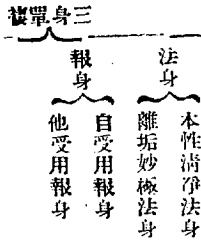 三身單複
法身
本性清淨法身
離垢妙極法身
報身
自受用報身
他受用報身